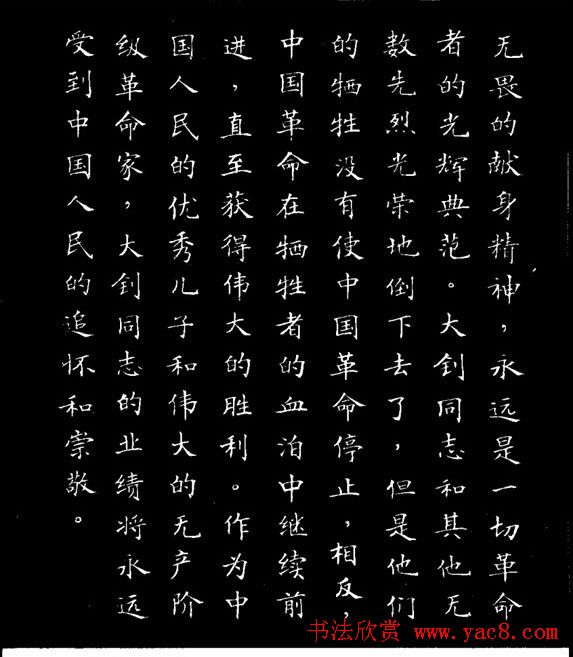 无畏的献身精神，永远是一切革命
者的光辉典范。大钊同志和其他无
数先烈光荣地倒下去了，但是他们
的牺牲没有使中国革命停止，相反，
中国革命在牺牲者的血泊中继续前
进，直至获得伟大的胜利。作为中
国人民的优秀儿子和伟大的无产阶
级革命家，大钊同志的业绩将永远
受到中国人民的追怀和崇敬。
书法欣赏 www.yac8.com